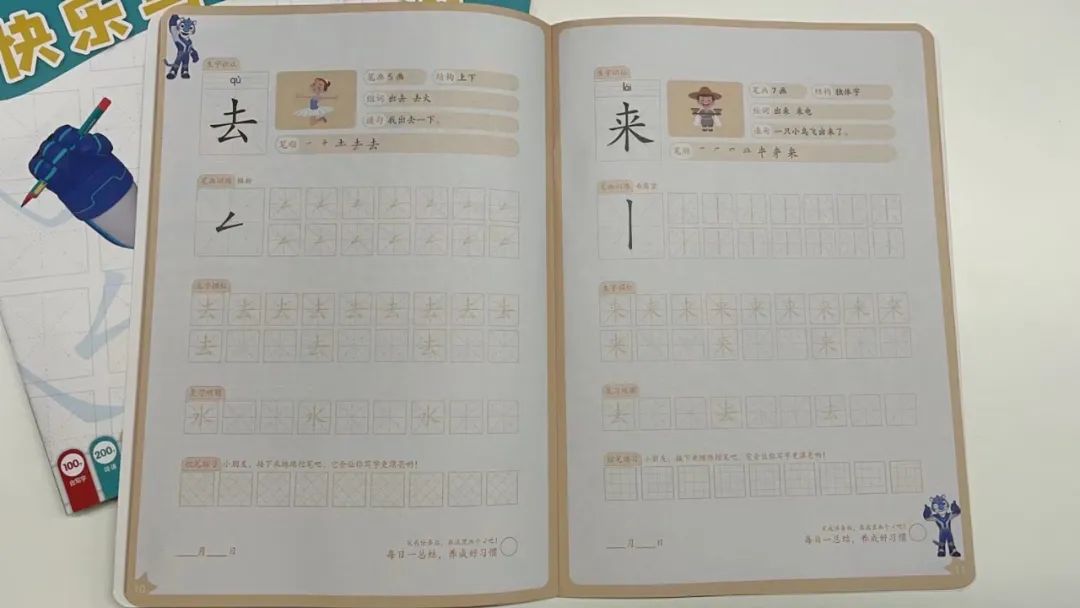 快乐
100+
自写字
200+
生字识认
qù
去
笔画 5 画
结构 上下
组词 出去 去火
造句 我出去一下。
笔顺 一 十 土 去 去
笔画训练 撇折
生字描红
去 去 去 去 去 去 去 去 去
去 去 去
复习巩固
水 水 水
控笔练习 小朋友，接下来练练控笔吧，它会让你写字更漂亮哟！
月 日
每日一总结，养成好习惯
10
生字识认
lái
来
笔画 7 画
结构 独体字
组词 出来 来电
造句 一只小鸟飞出来了。
笔顺
笔画训练
生字描红
来 来 来 来 来 来 来 来 来
来 来 来
复习巩固
去 去 去
控笔练习 小朋友，接下来练练控笔吧，它会让你写字更漂亮哟！
月 日
每日一总结，养成好习惯
11